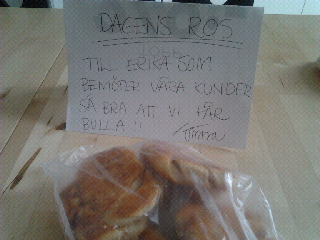 DAGENS ROS
TILL ERIKA SOM
BEMÖTER VÅRA KUNDER
SÅ BRA ATT VI FÅR
BULLA!!